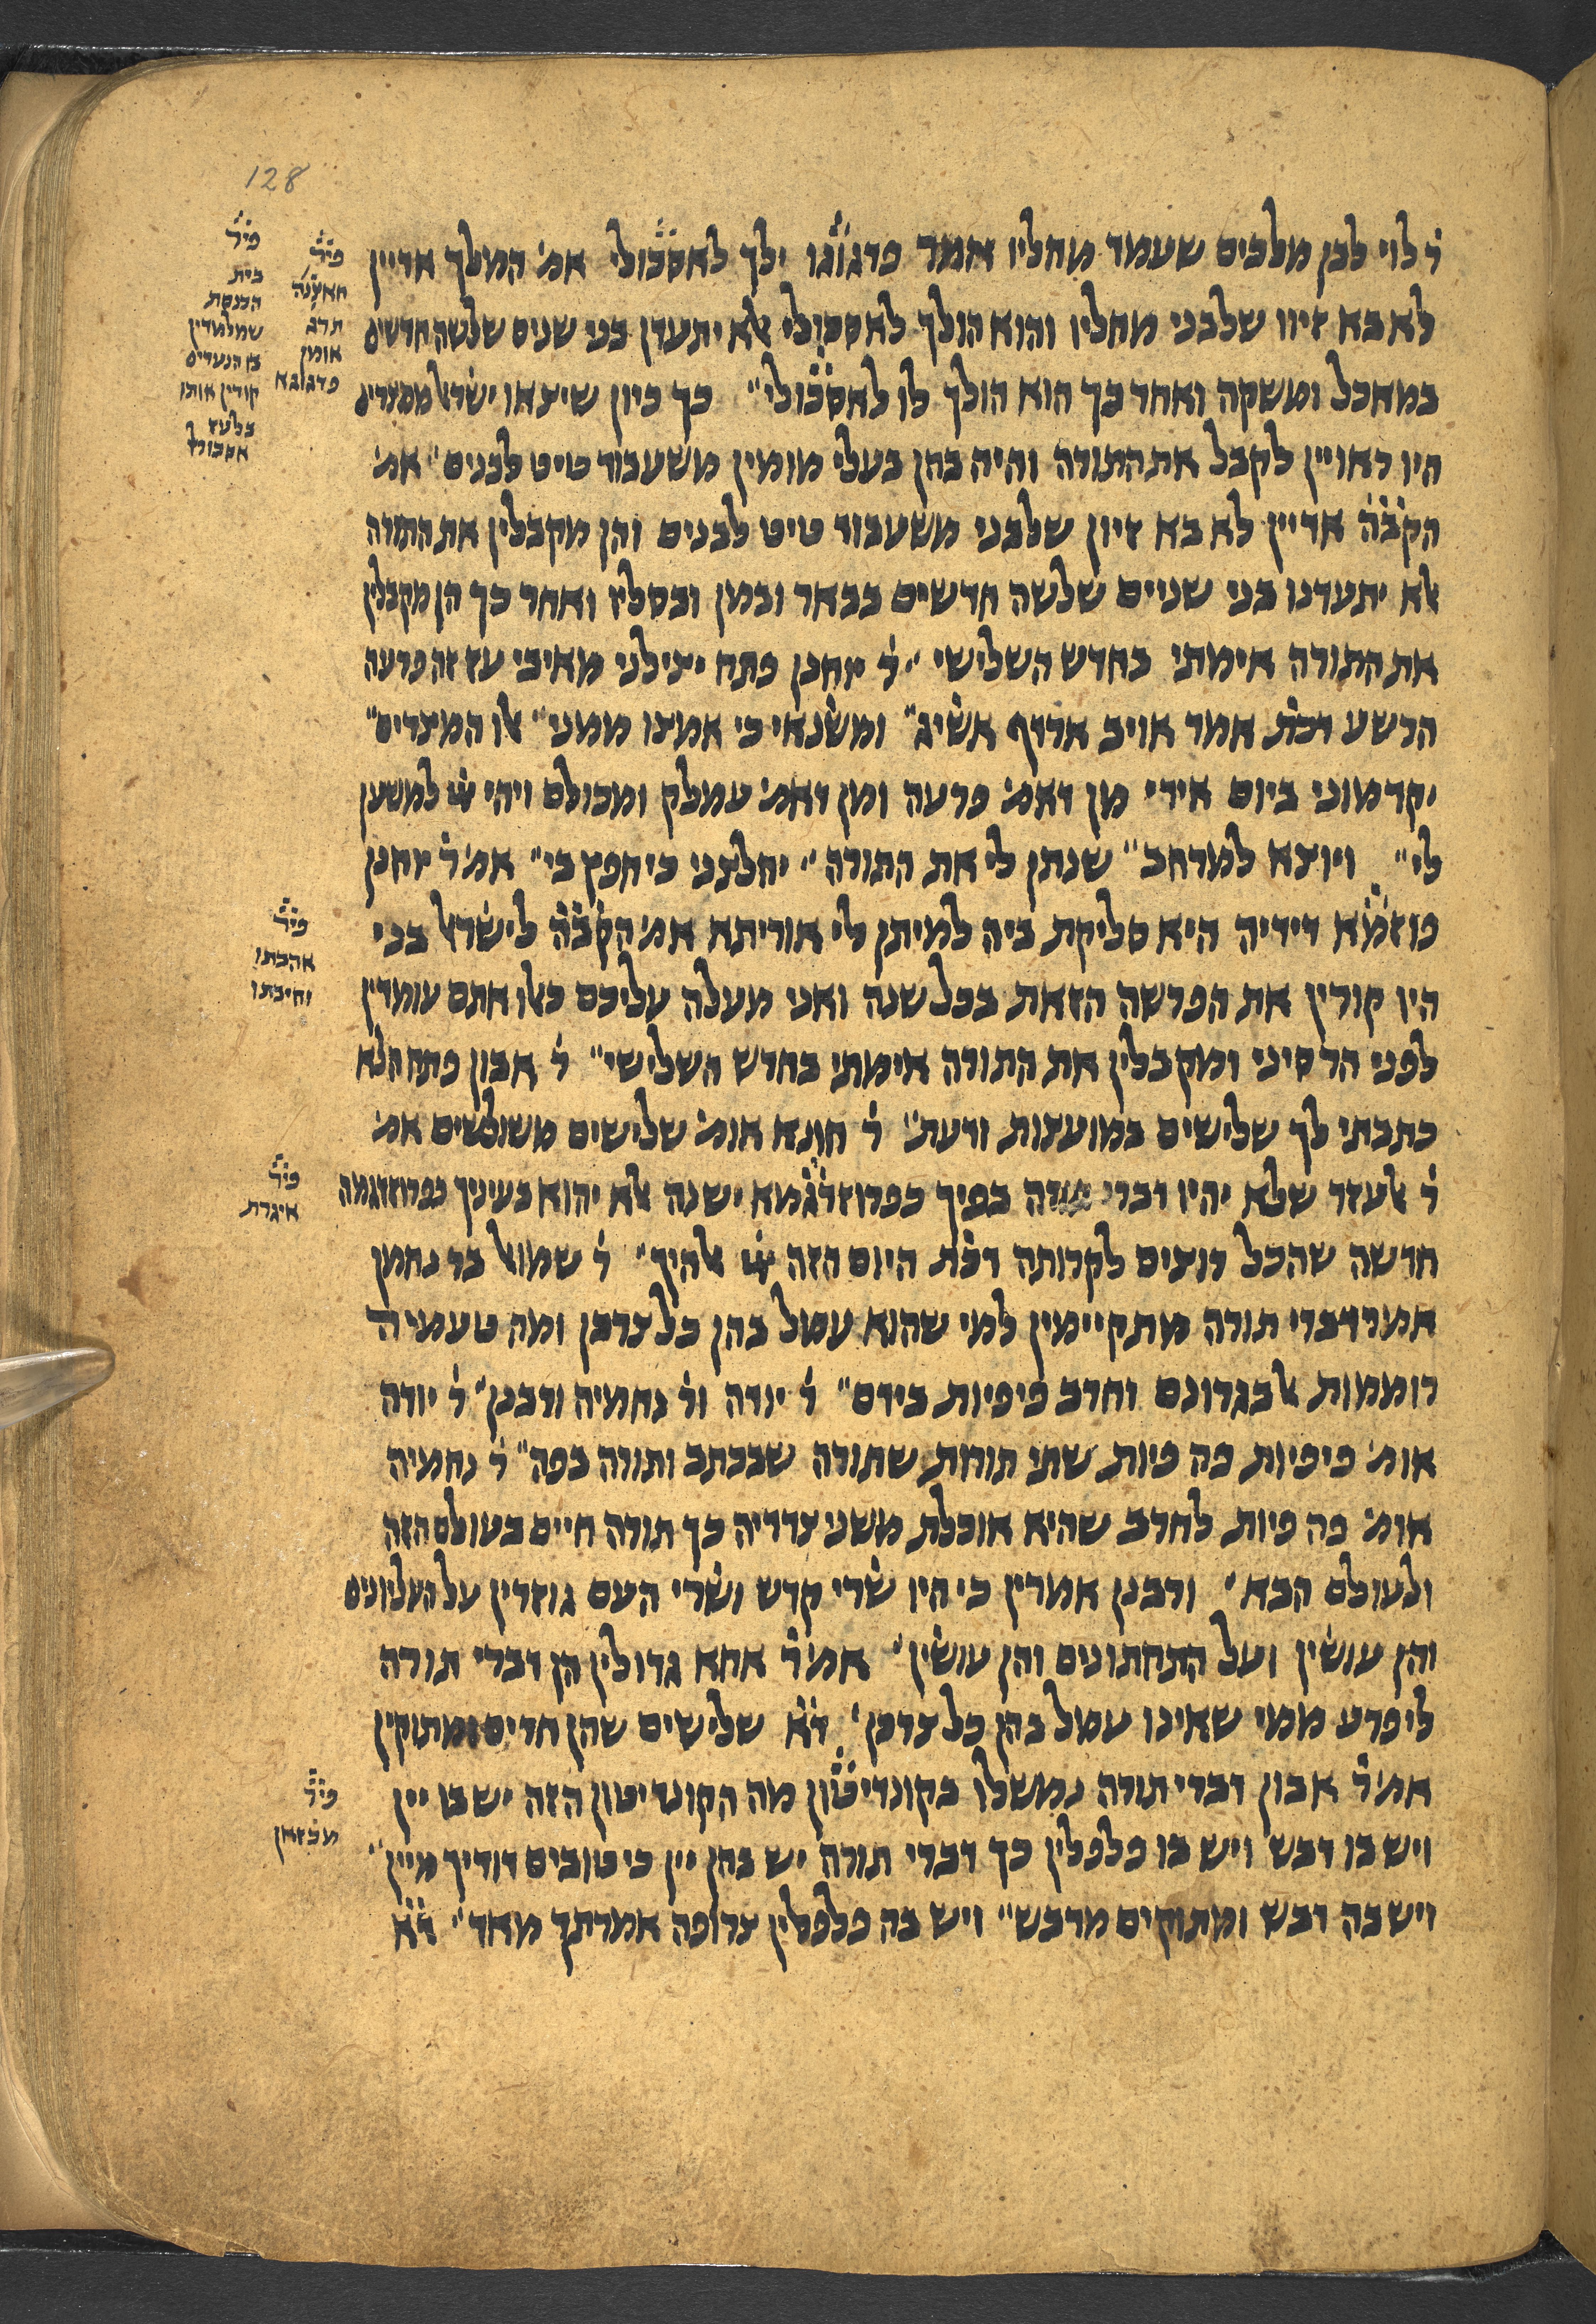 128
ר׳ לוי לבן מלכים שעמד מחליו אמר פדגוגו ילך לאסכולי אמ׳ המלך אדיין
לא בא זיוו שלבני מחליו והוא הולך לאסכולי אלא יתעדן בני שנים שלשה חדשים
במאכל ומשקה ואחר כך הוא הולך לו לאסכולי״ כך כיון שיצאו ישראל ממצרים
היו ראויין לקבל את התורה והיה בהן בעלי מומין משעבוד טיט לבנים׳ אמ׳
הקב̇ה̇ אדיין לא בא זיון שלבני משעבוד טיט לבנים והן מקבלין את התורה
אלא יתעדנו בני שניים שלשה חדשים בבאר ובמן ובסליו ואחר כך הן מקבלין
את התורה אימתי בחדש השלישי״ ר׳ יוחנן פתח יצילני מאיבי עז זה פרעה
הרשע דכת׳ אמר אויב ארדף אשיג״ ומשנאי כי אמצו ממני״ אלו המצרים״
יקדמוני ביום אידי מן דאמ׳ פרעה ומן דאמ׳ עמלק ומכולם ויהי ייי למשען
לי״ ויוצא למרחב״ שנתן לי את התורה״ יחלצני כי חפץ בי״ אמ׳ר׳ יוחנן
פוזמ̇א דידיה היא סליקת ביה למיתן לי אוריתא אמ׳ הקב̇ה̇ לישראל בני
היו קורין את הפרשה הזאת בכל שנה ואני מעלה עליכם כאלו אתם עומדין
לפני הר סיני ומקבלין את התורה אימתי בחדש השלישי״ ר׳ אבון פתח הלא
כתבתי לך שלישים במועצות ודעת״ ר׳ חונא אומ׳ שלישים משולשים אמ׳
ר׳ אלעזר שלא יהיו דברי תורה בפיך כפרוזדגמא ישנה אלא יהוא בעיניך כפרוזדגמה
חדשה שהכל רוצים לקרותה דכת׳ היום הזה ייי אלהיך״ ר׳ שמואל בר נחמן
אמר דברי תורה מתקיימין למי שהוא עמל בהן כל צרכן ומה טעמיה
רוממות אל בגרונם וחרב פיפיות בידם״ ר׳ יודה ור׳ נחמיה ורבנן״ ר׳ יודה
אומ׳ פיפיות פה פיות שתי תורות שתורה שבכתב ותורה בפה״ ר׳ נחמיה
אומ׳ פה פיות לחרב שהיא אוכלת משני צדדיה כך תורה חיים בעולם הזה
ולעולם הבא׳ ורבנן אמרין כי היו שרי קדש ושרי העם גוזרין על העליונים
והן עושין ועל התחתונים והן עושין׳ אמ׳ר׳ אחא גדולין הן דברי תורה
ליפרע ממי שאינו עמל בהן כל צרכן׳ ד̇א̇ שלישים שהן חדים ומתוקין
אמ׳ר׳ אבון דברי תורה נמשלו בקונדיטון מה הקונדיטון הזה יש בו יין
ויש בו דבש ויש בו פלפלין כך דברי תורה יש בהן יין כי טובים דודיך מיין״
ויש בה דבש ומתוקים מדבש״ ויש בה פלפלין צרופה אמרתך מאד״ ד̇א̇
פי̇ר̇
תרג׳
אומן
פדגוגא
פי̇ר̇
בית
הכנסת
שמלמדין
בו הנערים
קורין אותו
בלעז
אסכולי
פי̇ר̇
אהבתו
וחיבתו
פי̇ר̇
איגרת
פי̇ר̇